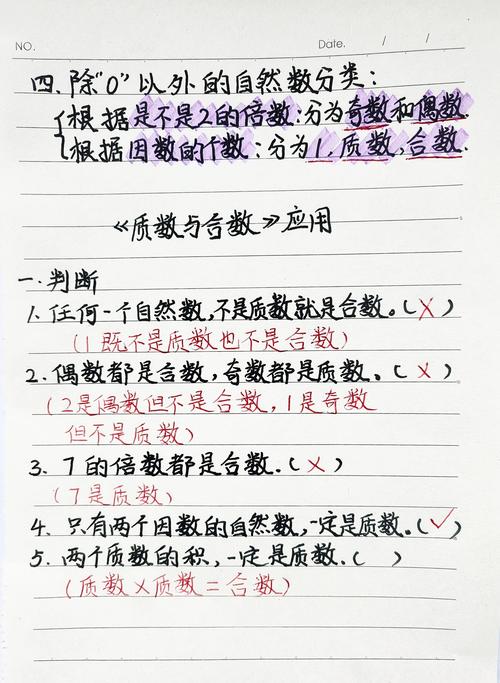 NO.
Date. / /
四、除"0"以外的自然数分类:
{根据是不是2的倍数:分为奇数和偶数.
根据因数的个数:分为1、质数、合数.
《质数与合数》应用
一.判断
1.任何一个自然数,不是质数就是合数。(×)
(1既不是质数也不是合数)
2.偶数都是合数,奇数都是质数。(×)
(2是偶数但不是合数,1是奇数
但不是质数)
3. 7的倍数都是合数.(×)
(7是质数)
4. 只有两个因数的自然数,一定是质数.(✓)
5. 两个质数的积,一定是质数.( )
(质数×质数=合数)